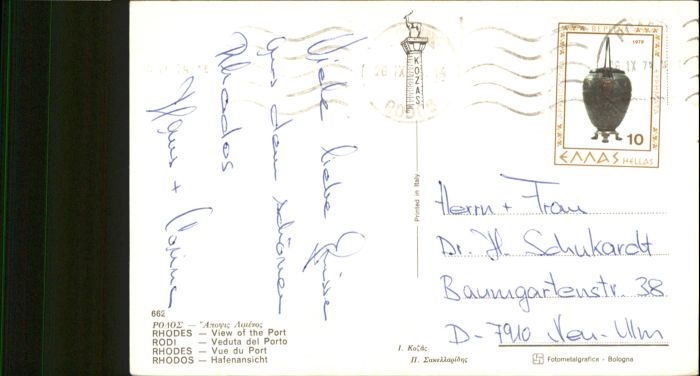 Viele liebe Grüsse
aus dem schönen
Rhodos
Hans + Corinna
662
ΡΟΔΟΣ — Ἄποψις Λιμένος
RHODES — View of the Port
RODI — Veduta del Porto
RHODES — Vue du Port
RHODOS — Hafenansicht
Printed in Italy
KOZAS
1979
10
ΕΛΛΑΣ HELLAS
Herrn + Frau
Dr. H. Schukardt
Baumgartenstr. 38
D-7910 Neu-Ulm
Ι. Κοζᾶς
Π. Σακελλαρίδης
Fotometalgrafica - Bologna